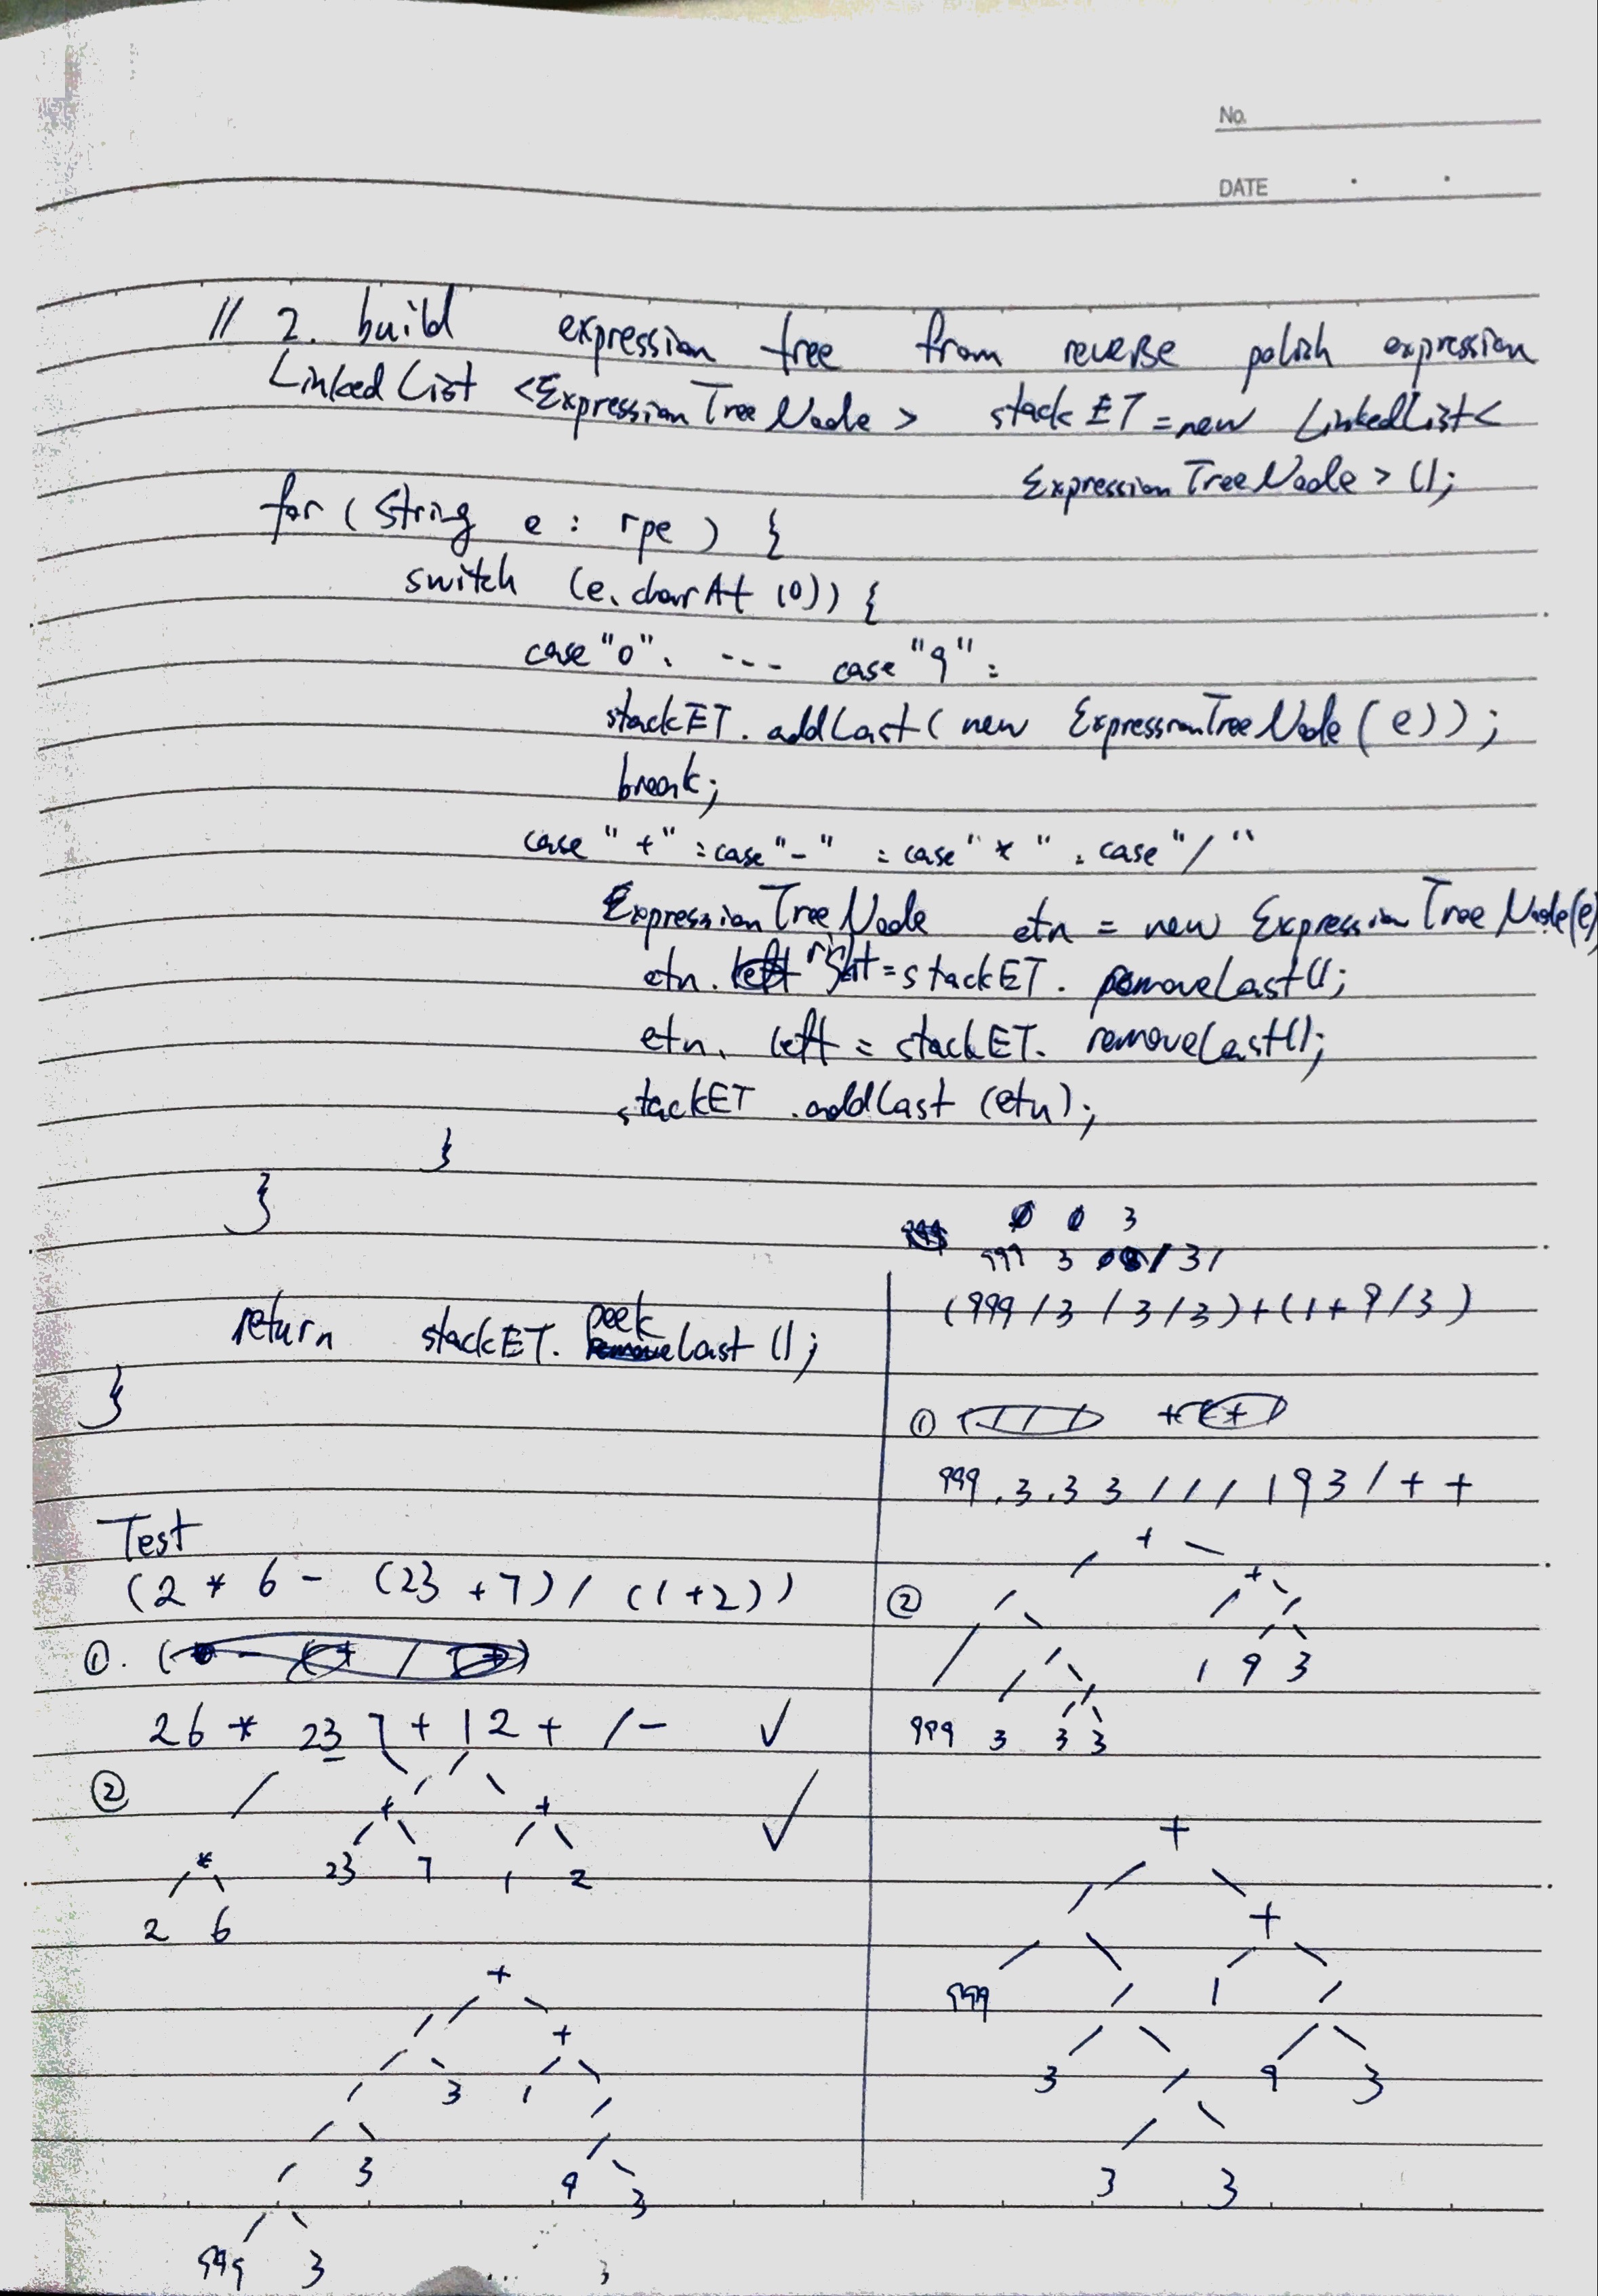 No.
DATE
// 2. build expression tree from reverse polish expression
LinkedList <ExpressionTreeNode> stackET = new LinkedList<
ExpressionTreeNode>();
for (String e : rpe) {
switch (e.charAt(0)) {
case "0": --- case "9":
stackET.addLast(new ExpressionTreeNode(e));
break;
case "+": case "-": case "*": case "/"
ExpressionTreeNode etn = new ExpressionTreeNode(e)
etn.right = stackET.removeLast();
etn.left = stackET.removeLast();
stackET.addLast(etn);
}
}
return stackET.peekLast();
}
3
999 3 / 3 /
(999/3/3/3)+(1+9/3)
①
999.3.3 3 / / / 1 9 3 / + +
+
/ +
② / 1 9 3
999 3 3 3
+
/ +
999 / 1 /
3 / 9 3
3 3
Test
(2 * 6 - (23 + 7) / (1+2))
①.
2 6 * 23 7 + 1 2 + / - ✓
② + + ✓
* 23 7 1 2
2 6
+
/ +
/ 3 1 /
/ 3 9 3
999 3